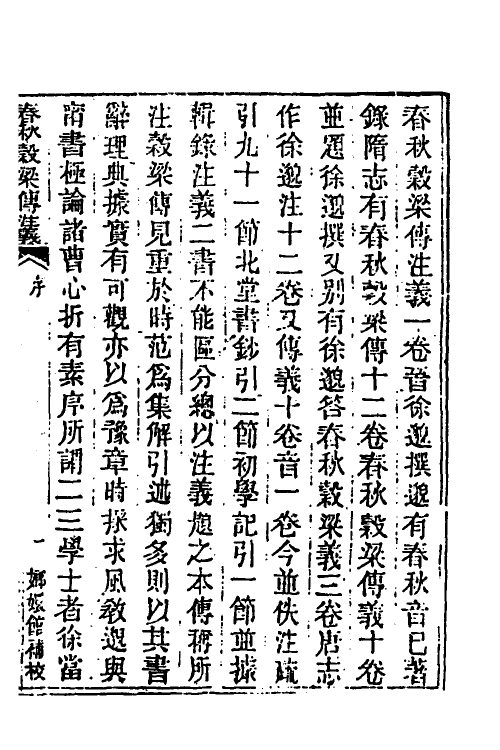 春秋穀梁傳注義一卷晉徐邈撰邈有春秋音已著
錄隋志有春秋穀梁傳十二卷春秋穀梁傳義十卷
並題徐邈撰又別有徐邈答春秋穀梁義三卷唐志
作徐邈注十二卷又傳義十卷音一卷今並佚注疏
引九十一節北堂書鈔引二節初學記引一節並據
輯錄注義二書不能區分總以注義題之本傳稱所
注穀梁傳見重於時范為集解引述獨多則以其書
辭理典據實有可觀亦以為豫章時採求風教邈與
甯書極論諸曹心折有素序所謂二三學士者徐當
春秋穀梁傳注義 序 一 嫏嬛館補校